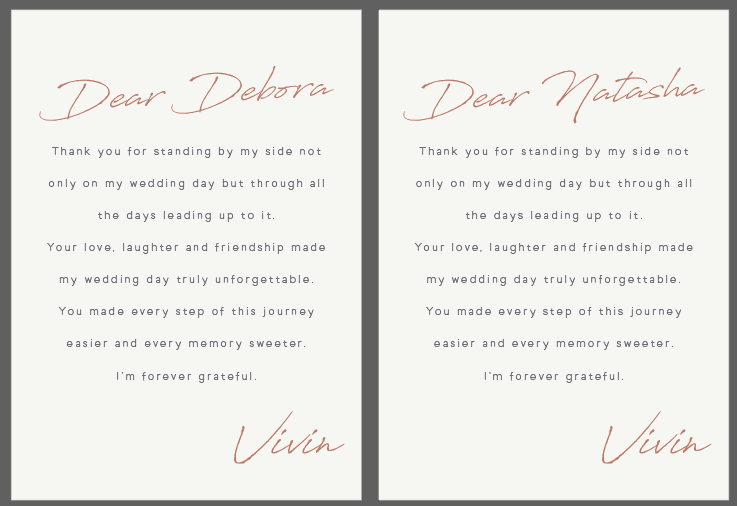 Dear Debora
Thank you for standing by my side not
only on my wedding day but through all
the days leading up to it.
Your love, laughter and friendship made
my wedding day truly unforgettable.
You made every step of this journey
easier and every memory sweeter.
I'm forever grateful.
Vivin
Dear Natasha
Thank you for standing by my side not
only on my wedding day but through all
the days leading up to it.
Your love, laughter and friendship made
my wedding day truly unforgettable.
You made every step of this journey
easier and every memory sweeter.
I'm forever grateful.
Vivin